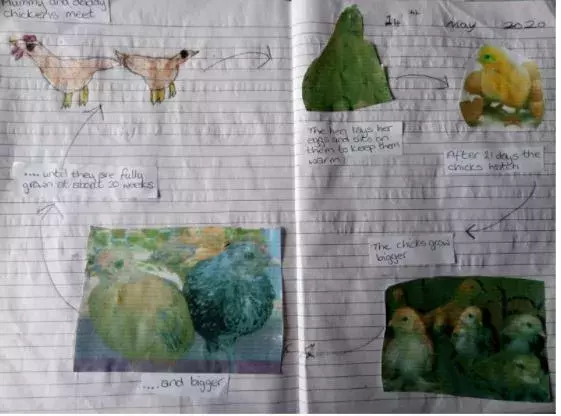 Mummy and daddy
chickens meet
14th May 2020
The hen lays her
eggs and sits on
them to keep them
warm
After 21 days the
chicks hatch
The chicks grow
bigger
.....and bigger
.... until they are fully
grown at about 20 weeks